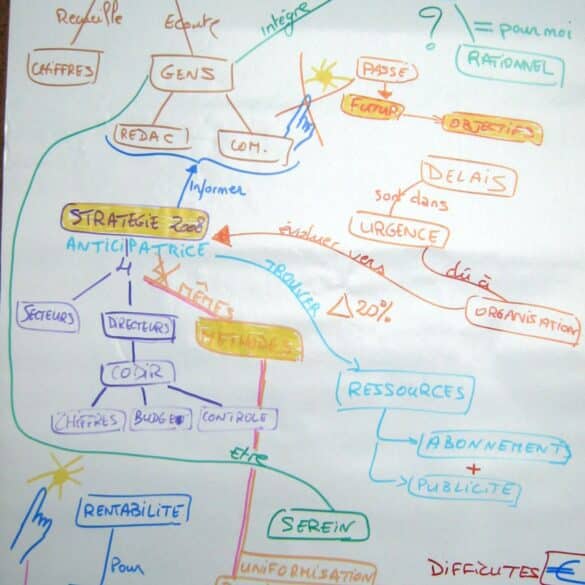 Recueille
Ecoute
Intègre
?
= pour moi
CHIFFRES
GENS
PASSÉ
RATIONNEL
FUTUR
OBJECTIFS
REDAC
COM.
DELAIS
Informer
sont dans
STRATEGIE 2008
URGENCE
ANTICIPATRICE
évoluer vers
dû à
4
TROUVER
MÊMES
20%
ORGANISATION
SECTEURS
DIRECTEURS
METHODES
CODIR
RESSOURCES
CHIFFRES
BUDGET
CONTROLE
ABONNEMENT
+
Etre
PUBLICITE
RENTABILITE
SEREIN
Pour
UNIFORMISATION
DIFFICULTES
€